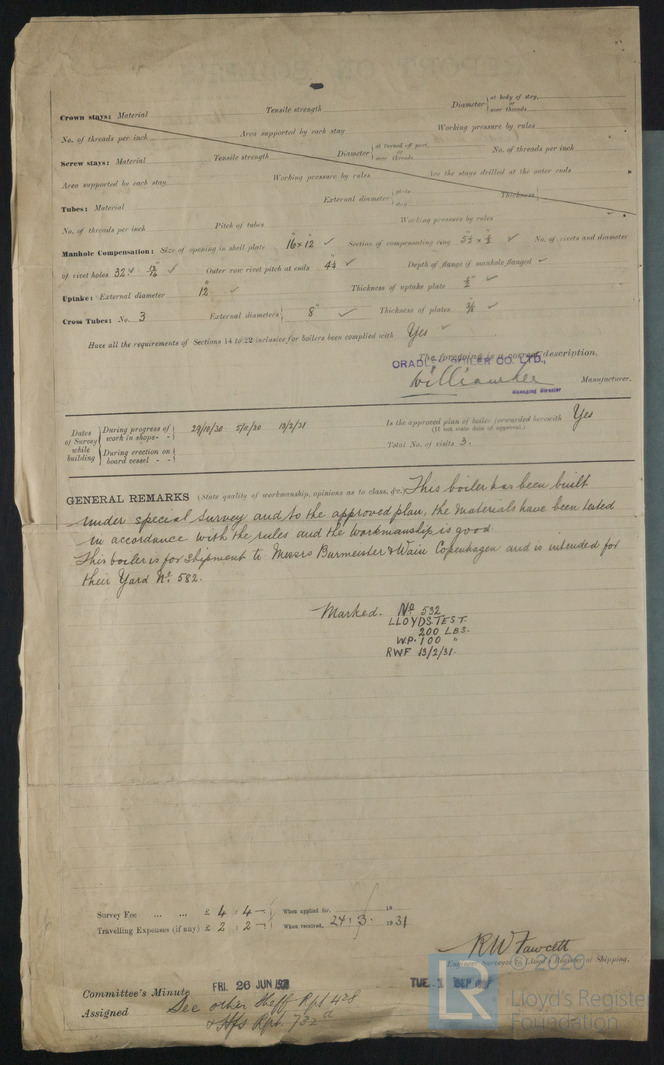 Crown stays: Material Tensile strength Diameter at body of stay, or over threads
No. of threads per inch Area supported by each stay Working pressure by rules
Screw stays: Material Tensile strength Diameter at turned off part, or over threads No. of threads per inch
Area supported by each stay Working pressure by rules Are the stays drilled at the outer ends
Tubes: Material External diameter plain stay Thickness
No. of threads per inch Pitch of tubes Working pressure by rules
Manhole Compensation: Size of opening in shell plate 16" × 12" ✓ Section of compensating ring ✓ No. of rivets and diameter
of rivet holes 32 ✓ Outer row rivet pitch at ends ✓ Depth of flange if manhole flanged ✓
Uptake: External diameter 12" ✓ Thickness of uptake plate ✓
Cross Tubes: No. 3 External diameters 8" ✓ Thickness of plates ✓
Have all the requirements of Sections 14 to 22 inclusive for boilers been complied with Yes ✓
The foregoing is a correct description,
CRADLEY BOILER CO. LTD.,
Manufacturer.
Managing Director
Dates of Survey while building During progress of work in shops - - 29/10/30 5/11/30 13/2/31
During erection on board vessel - -
Is the approved plan of boiler forwarded herewith Yes
(If not state date of approval.)
Total No. of visits 3.
GENERAL REMARKS (State quality of workmanship, opinions as to class, &c.) This boiler has been built
under special survey and to the approved plan, the materials have been tested
in accordance with the rules and the workmanship is good.
This boiler is for shipment to Messrs Burmeister & Wain Copenhagen and is intended for
their Yard No. 582.
Marked. No 532
LLOYDS TEST.
200 LBS.
W.P. 100 "
RWF 13/2/31.
Survey Fee ... ... £ 4 : 4 - When applied for, 19
Travelling Expenses (if any) £ 2 : 2 - When received, 24 : 3 . 1931
RW Fawcett
Engineer Surveyor to Lloyd's Register of Shipping.
Committee's Minute FRI. 26 JUN TUE. 1 SEP
Assigned See other Sheff Rpt 428
LR © 2020
Lloyd's Register
Foundation